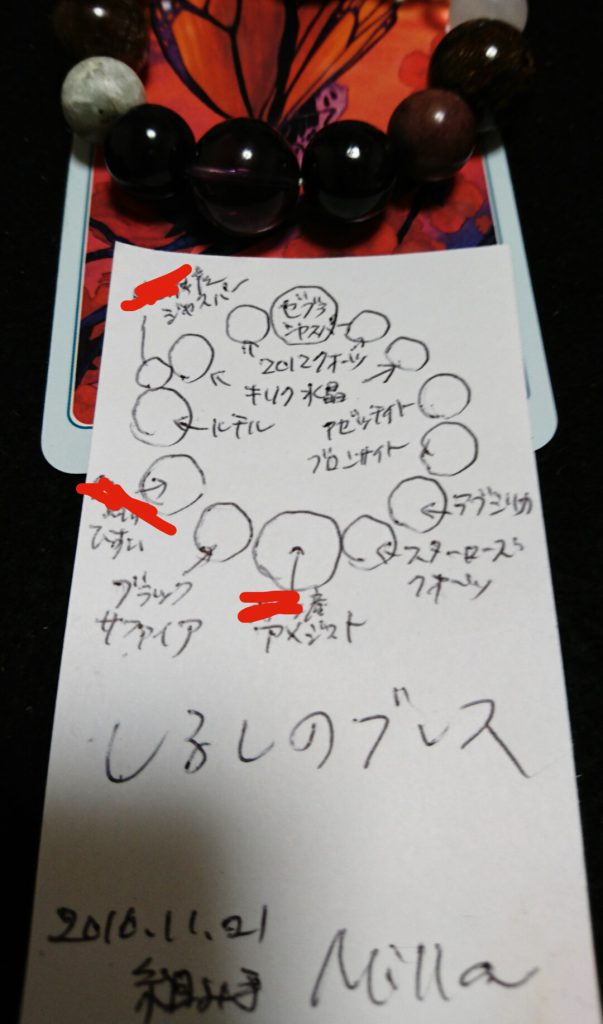 産
ジャスパー
ゼブラ
ジャスパー
2012クォーツ
キリク水晶
ルチル
アゼツライト
ブロンサイト
ひすい
アブシリカ
スターローズ
クォーツ
ブラック
サファイア
産
アメジスト
しるしのブレス
2010.11.21
組み手 Milla